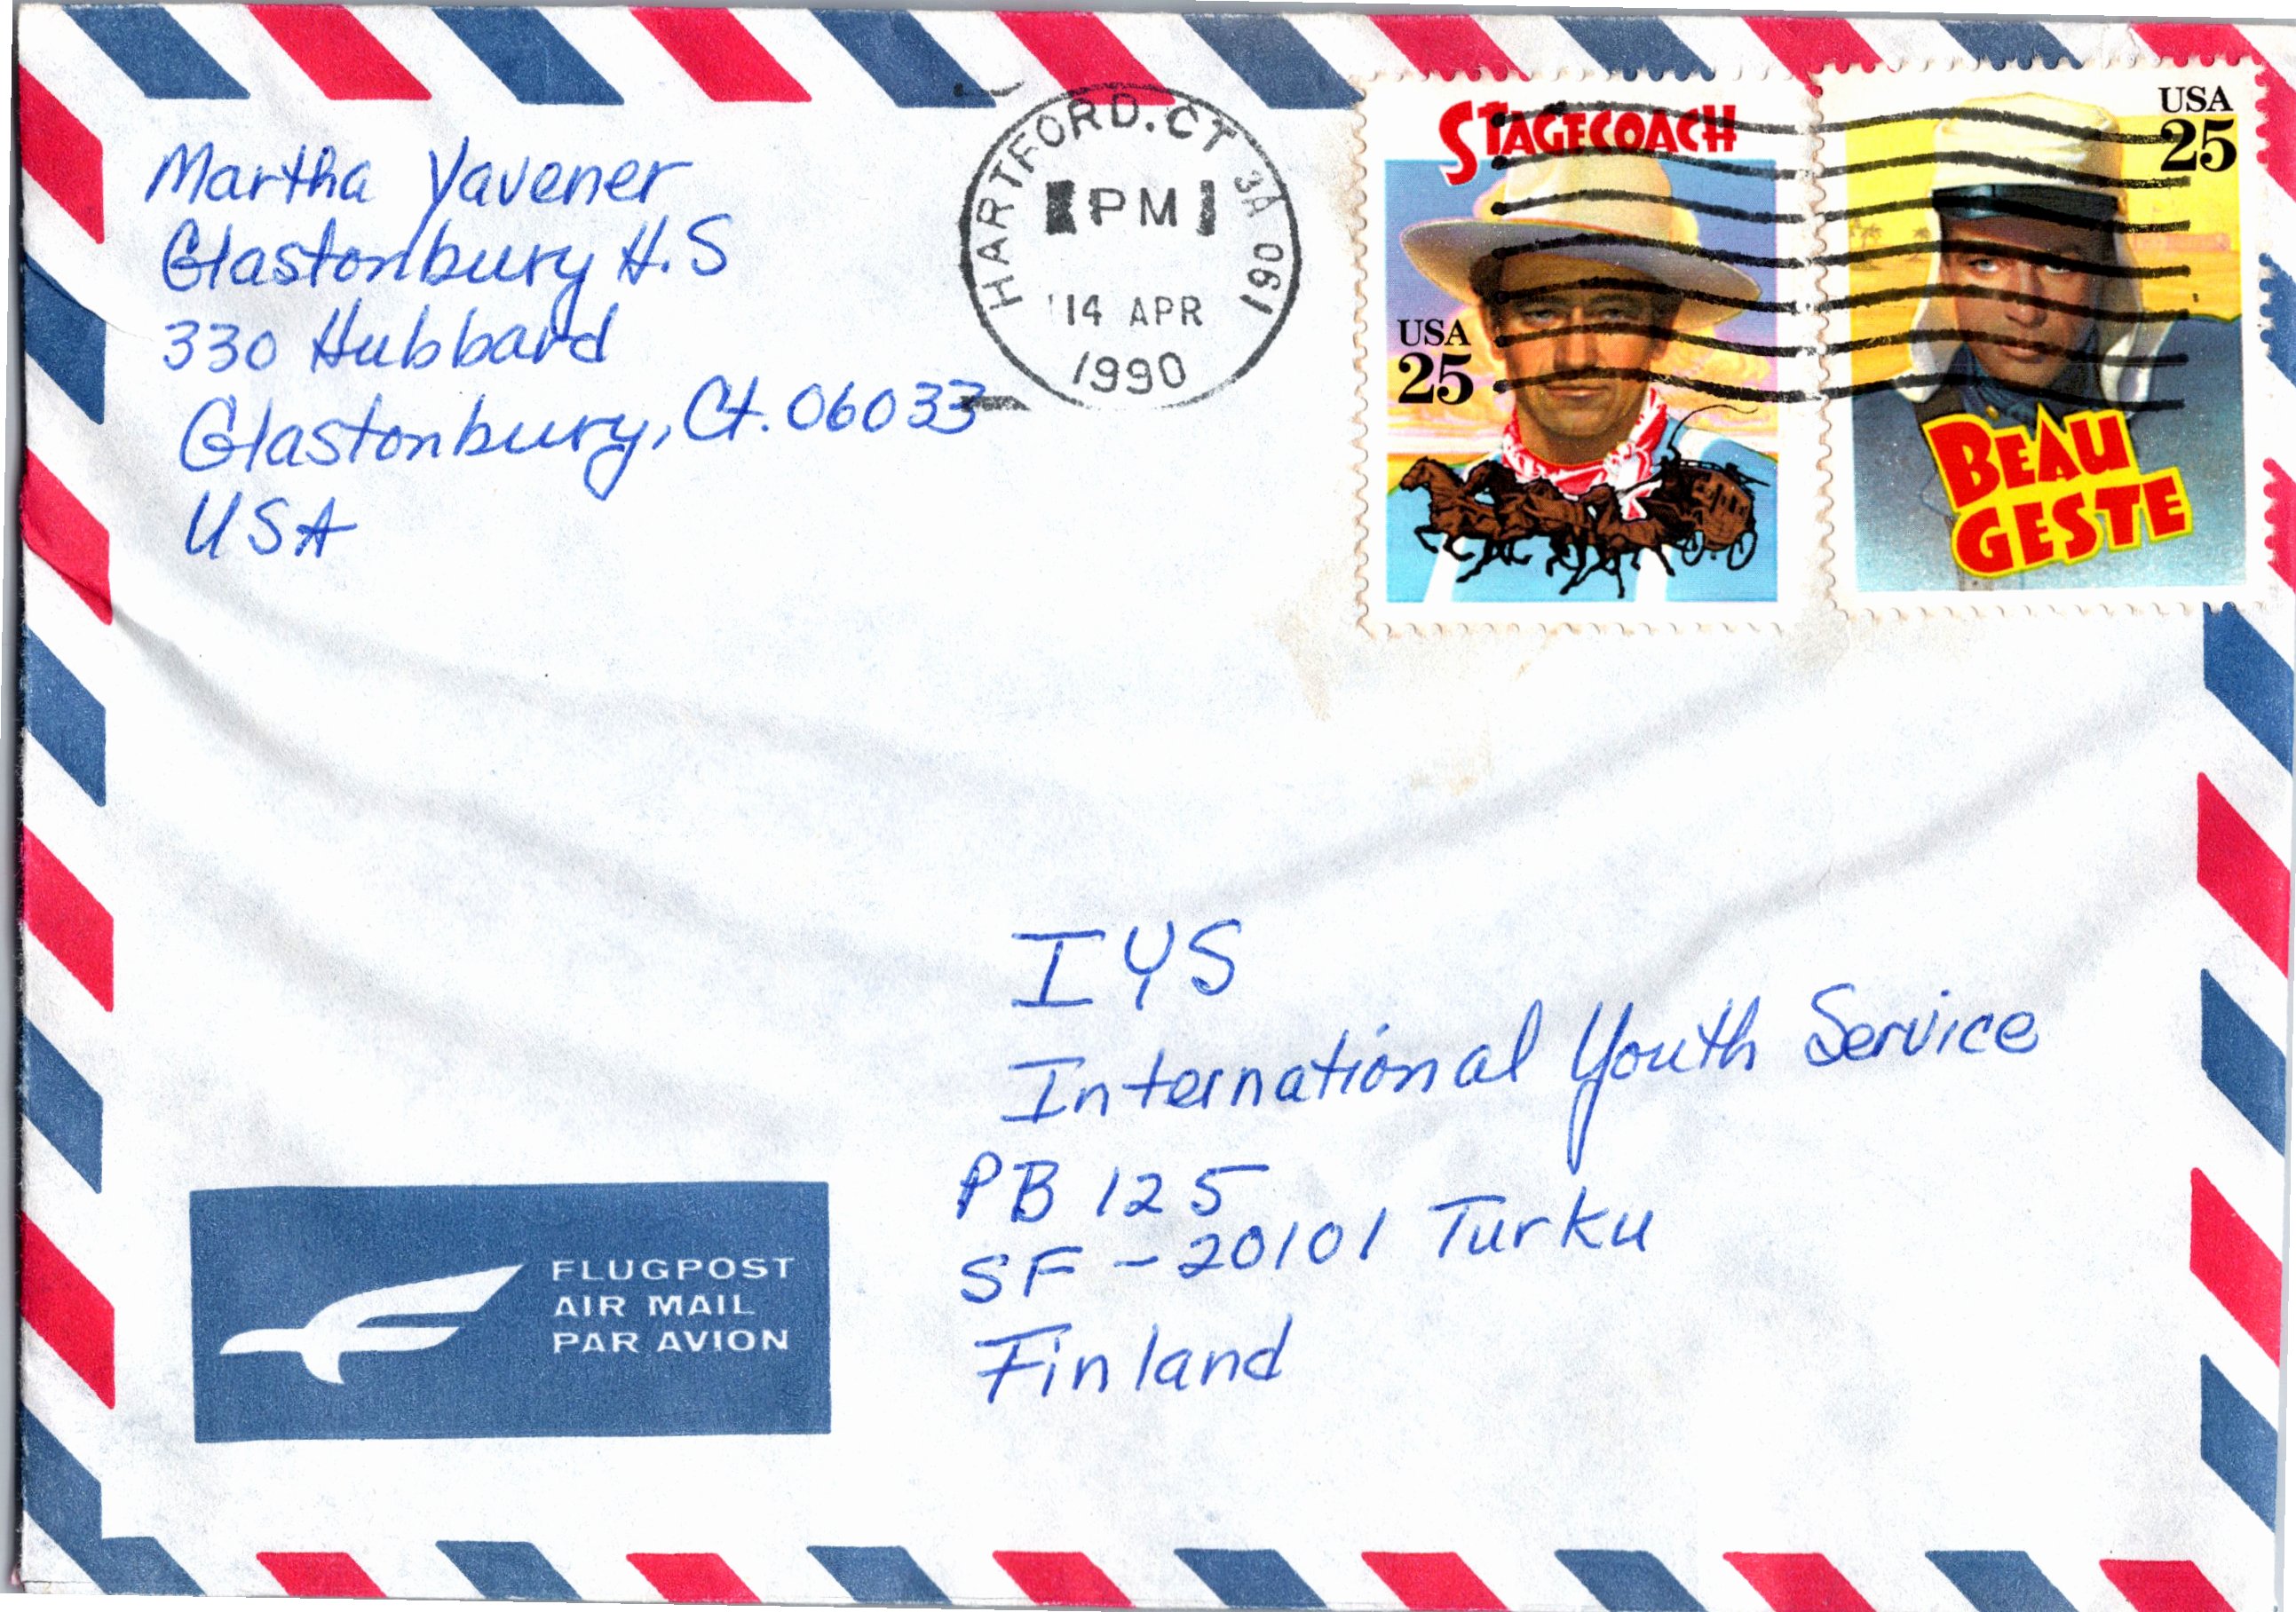 Martha Yavener
Glastonbury H.S
330 Hubbard
Glastonbury, Ct. 06033
USA
HARTFORD. CT 3A 061
PM
14 APR
1990
STAGECOACH
USA
25
USA
25
BEAU
GESTE
IYS
International Youth Service
PB 125
SF - 20101 Turku
Finland
FLUGPOST
AIR MAIL
PAR AVION